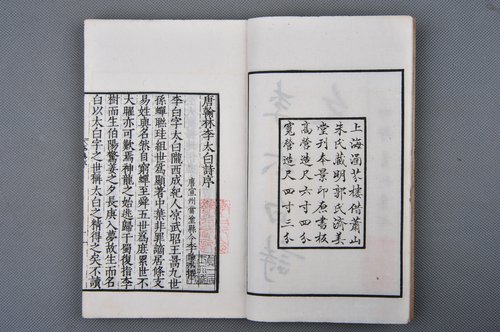 上海涵芬樓借蕭山
朱氏藏明郭氏濟美
堂刊本景印原書板
高營造尺六寸四分
寬營造尺四寸三分
唐翰林李太白詩序
唐宣州當塗縣令李陽冰撰
李白字太白隴西成紀人涼武昭王暠九世
孫蟬聯珪組世為顯著中葉非罪謫居條支
易姓與名然自窮蟬至舜五世為庶累世不
大曜亦可歎焉神龍之始逃歸于蜀復指李
樹而生伯陽驚姜之夕長庚入夢故生而名
白以太白字之世稱太白之精得之矣不讀